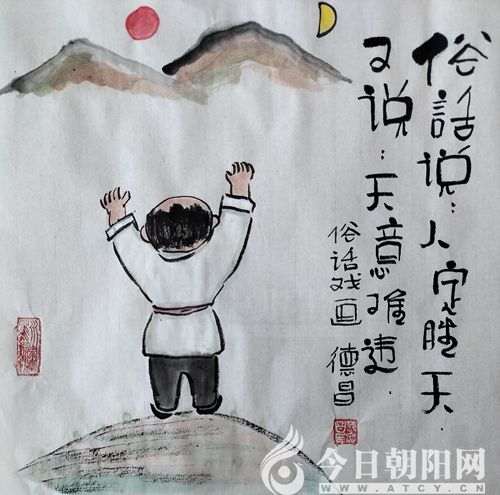 俗話说:人定胜天.
又说:天意难违.
俗话戏画 德昌
今日朝阳网
WWW.ATCY.CN